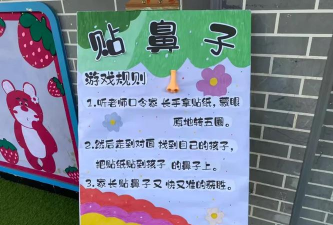 贴鼻子
游戏规则
1.听老师口令家长手拿贴纸,蒙眼
原地转五圈。
2.然后走到对面找到自己的孩子,
把贴纸贴到孩子的鼻子上。
3.家长贴鼻子又快又准的获胜。